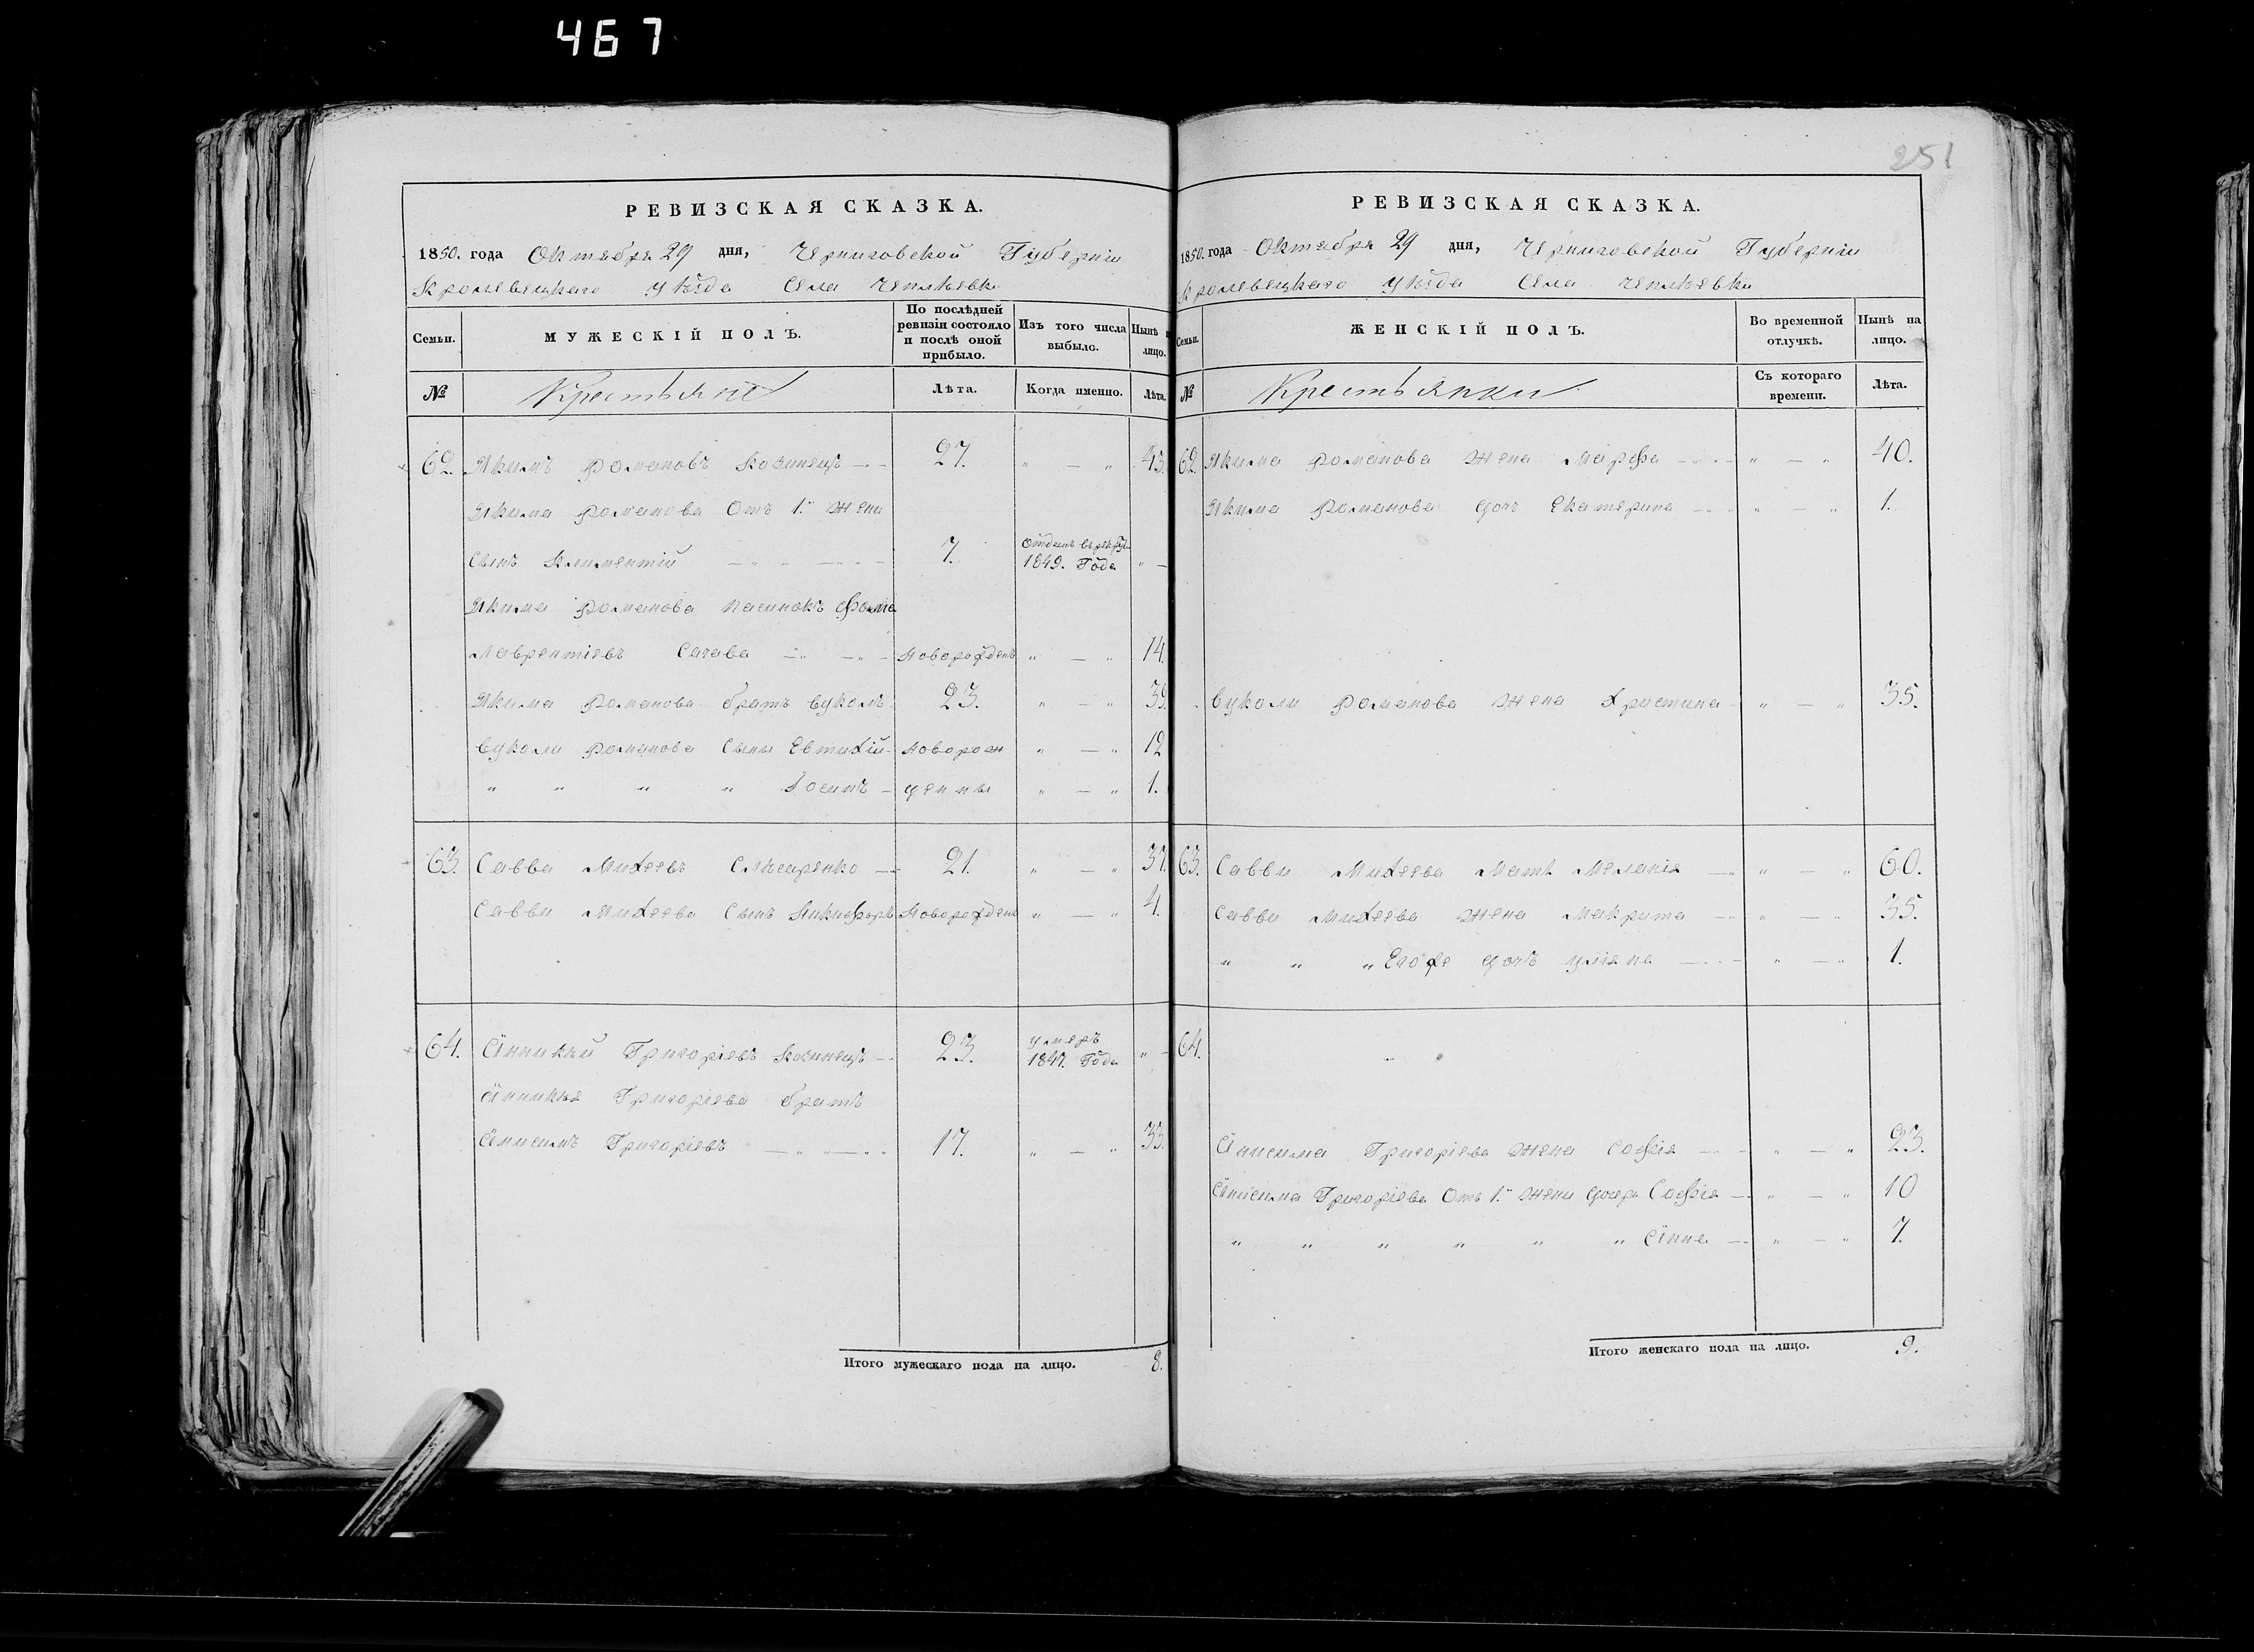 467
251
РЕВИЗСКАЯ СКАЗКА.
1850. года Октября 29 дня, Черниговской Губерніи
Кролевецкаго уѣзда Села Чепліевки
Семьи. МУЖЕСКІЙ ПОЛЪ. По послѣдней ревизіи состояло и послѣ оной прибыло. Изъ того числа выбыло. Нынѣ на лицо.
№ Крестьяне Лѣта. Когда именно. Лѣта.
62. Якимъ Романовъ 27. " — " 43.
Якима Романова Отъ 1й жены
сынъ Климентій 7. Отданъ въ рекруты 1849. Года " —
Якима Романова пасинокъ Фома
Лаврентіевъ Сачава новорожденъ " — " 14.
Якима Романова братъ Вуколъ 23. " — " 39.
Вуколи Романова сыны Евтихій новорож " — " 12
" " " " Іосипъ — денны " — " 1.
63. Савва Михеевъ Слѣсаренко — 21. " — " 37.
Саввы Михеева сынъ Никифоръ Новорожденъ " — " 4.
64. Аникѣй Григоріевъ 23. умеръ 1847. Года " —
Аникѣя Григоріева братъ
Анисимъ Григоріевъ 17. " — " 33.
Итого мужескаго пола на лицо. 8.
РЕВИЗСКАЯ СКАЗКА.
1850. года Октября 29 дня, Черниговской Губерніи
Кролевецкаго уѣзда Села Чепліевки
Семьи. ЖЕНСКІЙ ПОЛЪ. Во временной отлучкѣ. Нынѣ на лицо.
№ Крестьянки Съ котораго времени. Лѣта.
62. Якима Романова жена Марфа " — " 40.
Якима Романова дочь Екатерина " — " 1.
Вуколи Романова жена Христина " — " 35.
63. Саввы Михеева мать Меланія " — " 60.
Саввы Михеева жена Макрина " — " 35.
" " " Егоже дочь Уліяна " — " 1.
64. "
Анисима Григоріева жена Софія " — " 23.
Анисима Григоріева Отъ 1й жены дочери Софія " — " 10
" " " " " " Анна " — " 7.
Итого женскаго пола на лицо. 9.